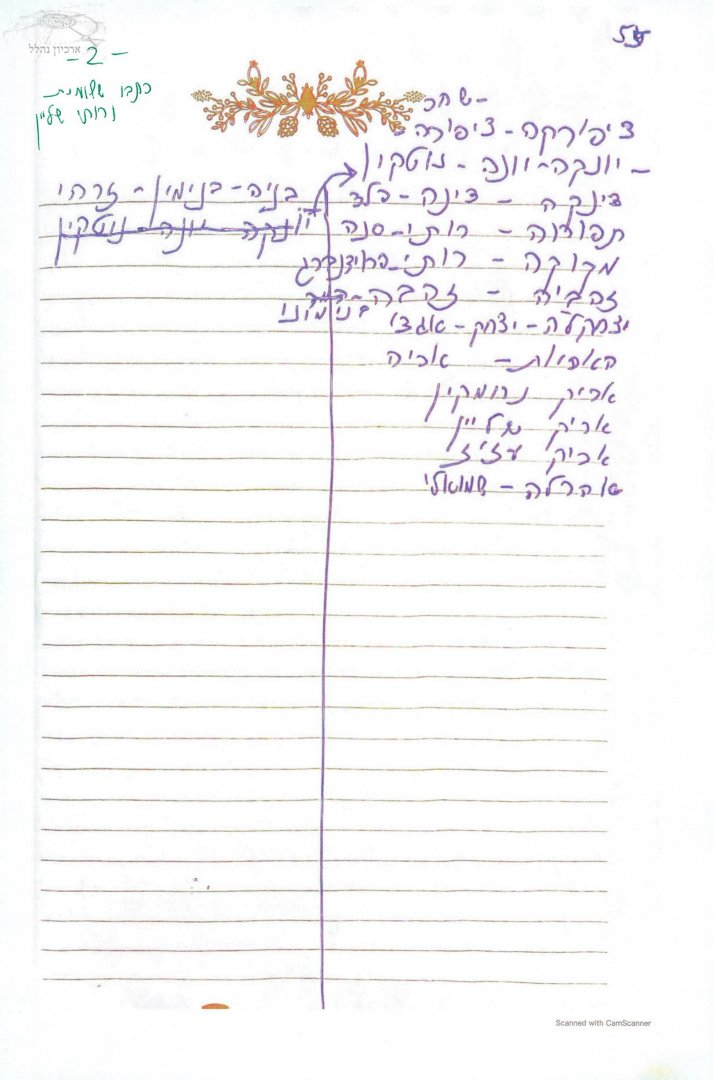 ארכיון נהלל
- 2 -
כתבו שלומית
ורותי שליין
- שחר
ציפורקה - ציפורה
- יונקה - יונה - נוטקין
דינקה - דינה - פלד
תפוזה - רותי - סנה
מקוקה - רותי - פרידנברג
זהביה - זהבה
בנימוני
יצחקלה - יצחק - אגדי
האריות - אריה
אריק נרומקין
אריק שליין
אריק עזיז
אהרלה - שמואלי
בניה - בנימין - זרחי
יונקה - יונה - נוטקין
Scanned with CamScanner